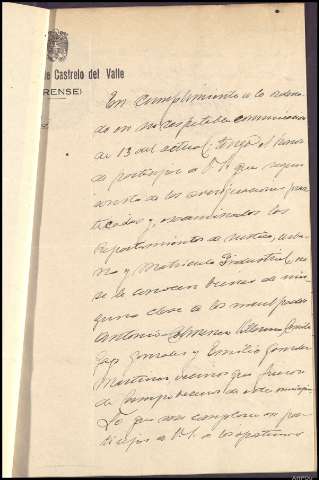 de Castrelo del Valle
(ORENSE)
En cumplimiento a lo ordena-
do en su respetable comunicación
de 13 del actual, tengo el honor
de participar a V.S. que segun
resulta de las averiguaciones prac-
ticadas y examinados los
repartimientos de rustica, urba-
na y Matricula Industrial, no
se le conocen bienes de nin-
guna clase a los inculpados
Antonio
Gonzalez y Emilio Gonzalez
Martinez vecinos que fueron
de Campobecerros de este municipio
Lo que me complazco en par-
ticipar a V.S. a los oportunos